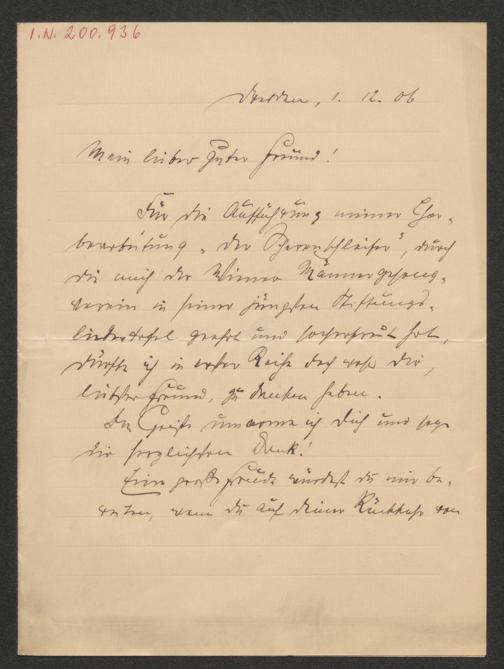 I.N. 200.936
Dresden, 1. 12. 06
Mein lieber guter Freund!
Für die Aufführung meiner Chor-
bearbeitung „Der Scherenschleifer", durch
die mich der Wiener Männergesang-
verein in seiner jüngsten Stiftungs-
liedertafel geehrt und hocherfreut hat,
dürfte ich in erster Reihe doch wohl Dir,
liebster Freund, zu danken haben.
Im Geiste umarme ich Dich und sage
Dir herzlichsten Dank!
Eine große Freude würdest du mir be-
reiten, wenn du auf deiner Rückkehr von